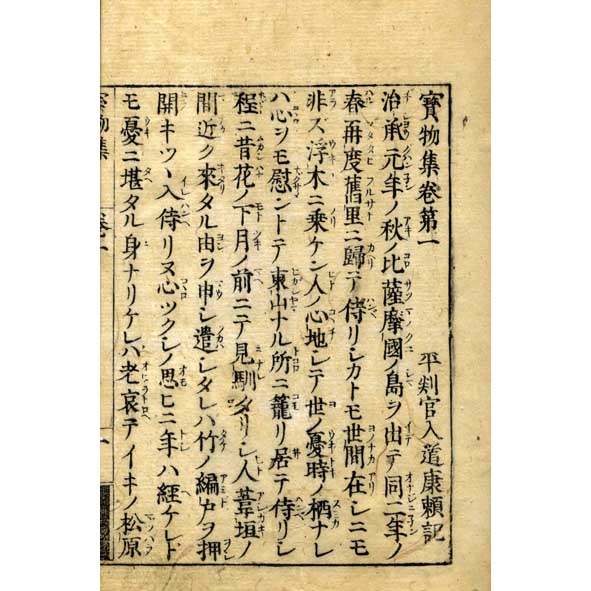 寳物集卷第一　平判官入道康頼記
治承元年ノ秋ノ比薩摩國ノ島ヲ出テ同二年ノ
春再度舊里ニ歸テ侍リシカトモ世間在シニモ
非ス浮木ニ乗ケン人ノ心地シテ世ノ憂時ノ栖ナレ
ハ心ヲモ慰ントテ東山ナル所ニ籠リ居テ侍リシ
程ニ昔花ノ下月ノ前ニテ見馴タリシ人葦垣ノ
間近ク來タル由ヲ申シ遣シタレハ竹ノ編戸ヲ押
開キツヽ入侍リヌ心ツクシノ思ヒニ年ハ經ケレト
モ憂ニ堪タル身ナリケレハ老哀テイキノ松原
寳物集　卷一　一